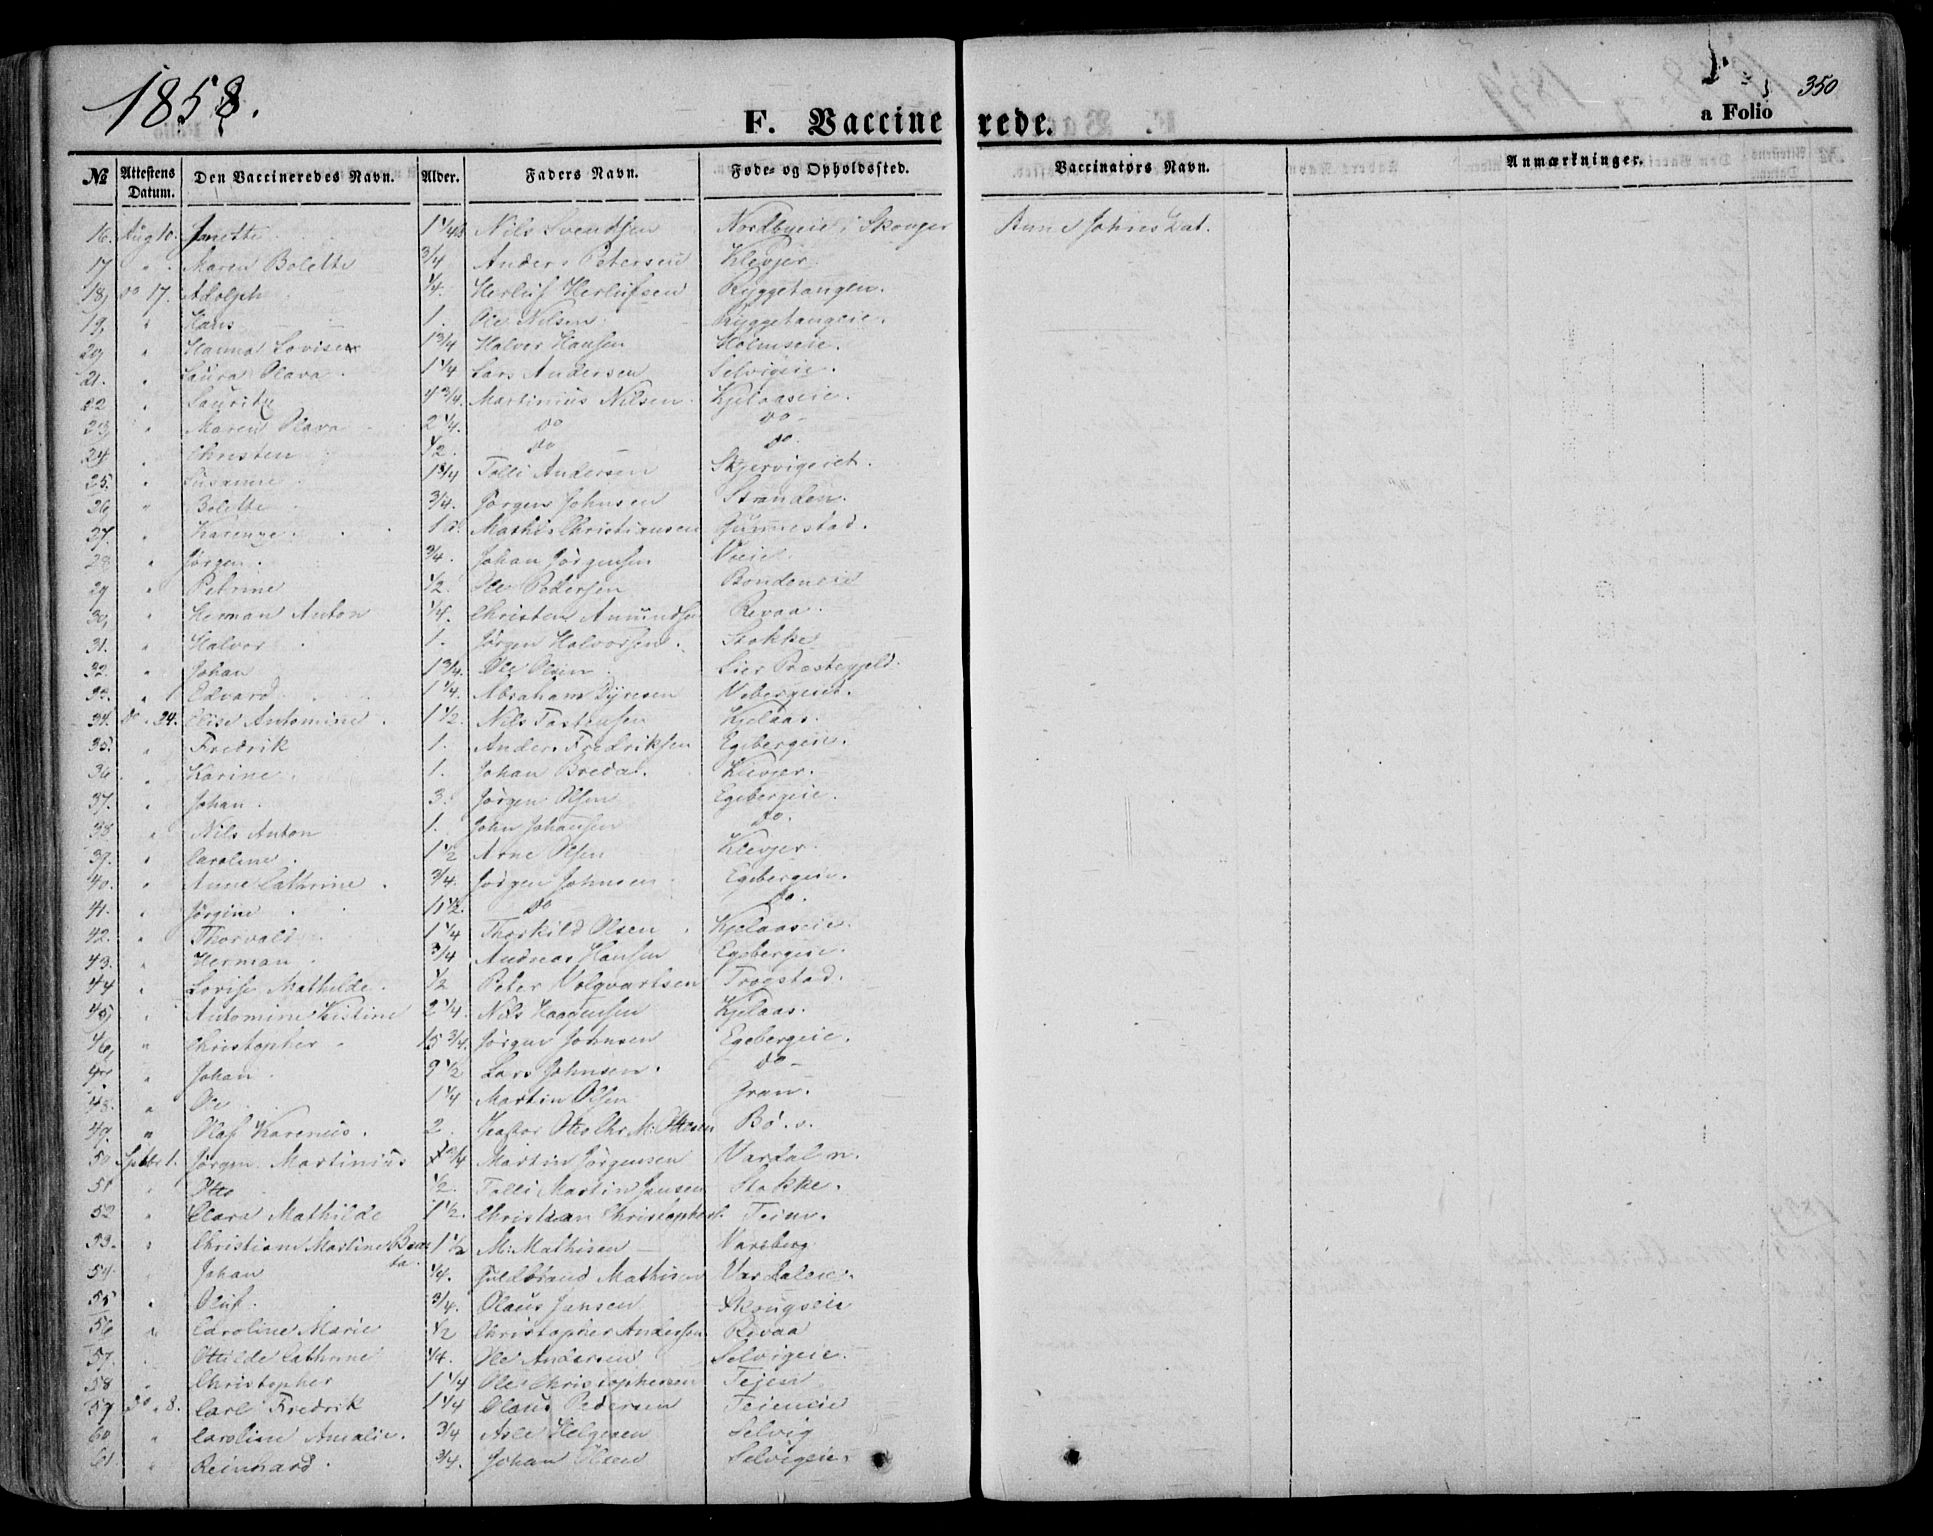 1858.
F. Vaccinerede.
a Folio 350
№ Attestens Datum. Den Vaccineredes Navn. Alder. Faders Navn. Føde- og Opholdssted. Vaccinators Navn. Anmærkninger.
16. Aug 10. Janette 1 1/4 Nils Svendsen Nordbyeie i Skouger Anne Johnsdat.
17 " Maren Bolette 3/4 Anders Petersen Klevjer
18, do 17. Adolph 1/4. Herluf Herlufsen Ryggetangen.
19, " Hans 1. Ole Nilsen Ryggetangeie.
20, " Hanna Lovise 1 3/4 Halvor Hansen Holmseie.
21. " Laura Olava 1 1/4 Lars Andersen Selvigeie.
22 " Lauritz 4 3/4. Martinius Nilsen Kjelaaseie.
23, " Maren Olava 2 1/4. do do
24. " Christen 1/2. do do
25. " Susanne 1 3/4 Tolli Andersen Skjervigeiet.
26, " Bolette 3/4. Jørgen Johnsen Stranden.
27. " Karenze. Mathis Christiansen Gunnestad.
28, " Jørgen. 3/4. Johan Jørgensen
29 " Petrine 1/2. Ole Pedersen Bondeneie
30, " Herman Anton 1/4. Christen Amundsen Revaa
31. " Halvor 1. Jørgen Halvorsen. Stokke
32. " Johan 1 3/4. Ole Olsen Lier Præstegjeld.
33. " Edvard 1 1/4. Abraham Dyresen Vebergeiet.
34. do " 24. Elise Antomine. 1 1/2. Nils Tostensen Kjelaas.
35. " Fredrik 1. Anders Fredriksen Egebergeie.
36 " Karine. 1. Johan Bredal. Klevjer.
37. " Johan. 3. Jørgen Olsen Egebergeie.
38 " Nils Anton 1. John Johansen do.
39. " Caroline. 1 1/2 Arne Olsen Klevjer
40. " Anne Cathrine. 3/4. Jørgen Johnsen Egebergeie.
41. " Jørgine 11 1/2. do do.
42. " Thorvald 1 1/4 Thorkild Olsen Kjelaaseie.
43. " Herman 3/4 Andreas Hansen Egebergeie.
44 " Lovise Mathilde. 1/2 Peter Volqvartsen Troestad.
45, " Antomine Kistine 2 1/4. Nils Haagensen Kjelaas.
46, " Christopher 15 3/4. Jørgen Johnsen Egebergeie.
47 " Johan. 9 1/2 Lars Johnsen. do
48. " Ole 1 1/4 Martin Olsen Gran.
49. " Olaf Karenius. 2. Pastor Otto Chr. M: Ottesen Bø.
50 Sptbr 1. Jørgen Martinius 3/4 Martin Jørgensen Vardalen.
51 " Otto 1/2. Tolli Martin Jansen Stokke.
52 " Clara Mathilde 1 1/2. Christian Christophers. Teien.
53. " Christiane Martine Beata. 1 1/2 M: Mathisen Varsberg
54. " Johan 1/4. Guldbrand Mathisen Vardaleie.
55 " Oluf. 3/4. Olaus Jansen Skougseie
56 " Caroline Marie 1/2 Christopher Andersen Revaa
57. " Ottilde Cathrine 1/4. Ole Andersen Selvigeie.
58 " Christopher 1 1/4 Ole Christophersen Tejen
59 do " 8. Carl Fredrik 1 1/4 Olaus Pedersen Teieneie
60 " Caroline Amalie. 3/4 Asle Helgesen Selvig
61 " Reinhard. 3/4. Johan Olsen Selvigeie.